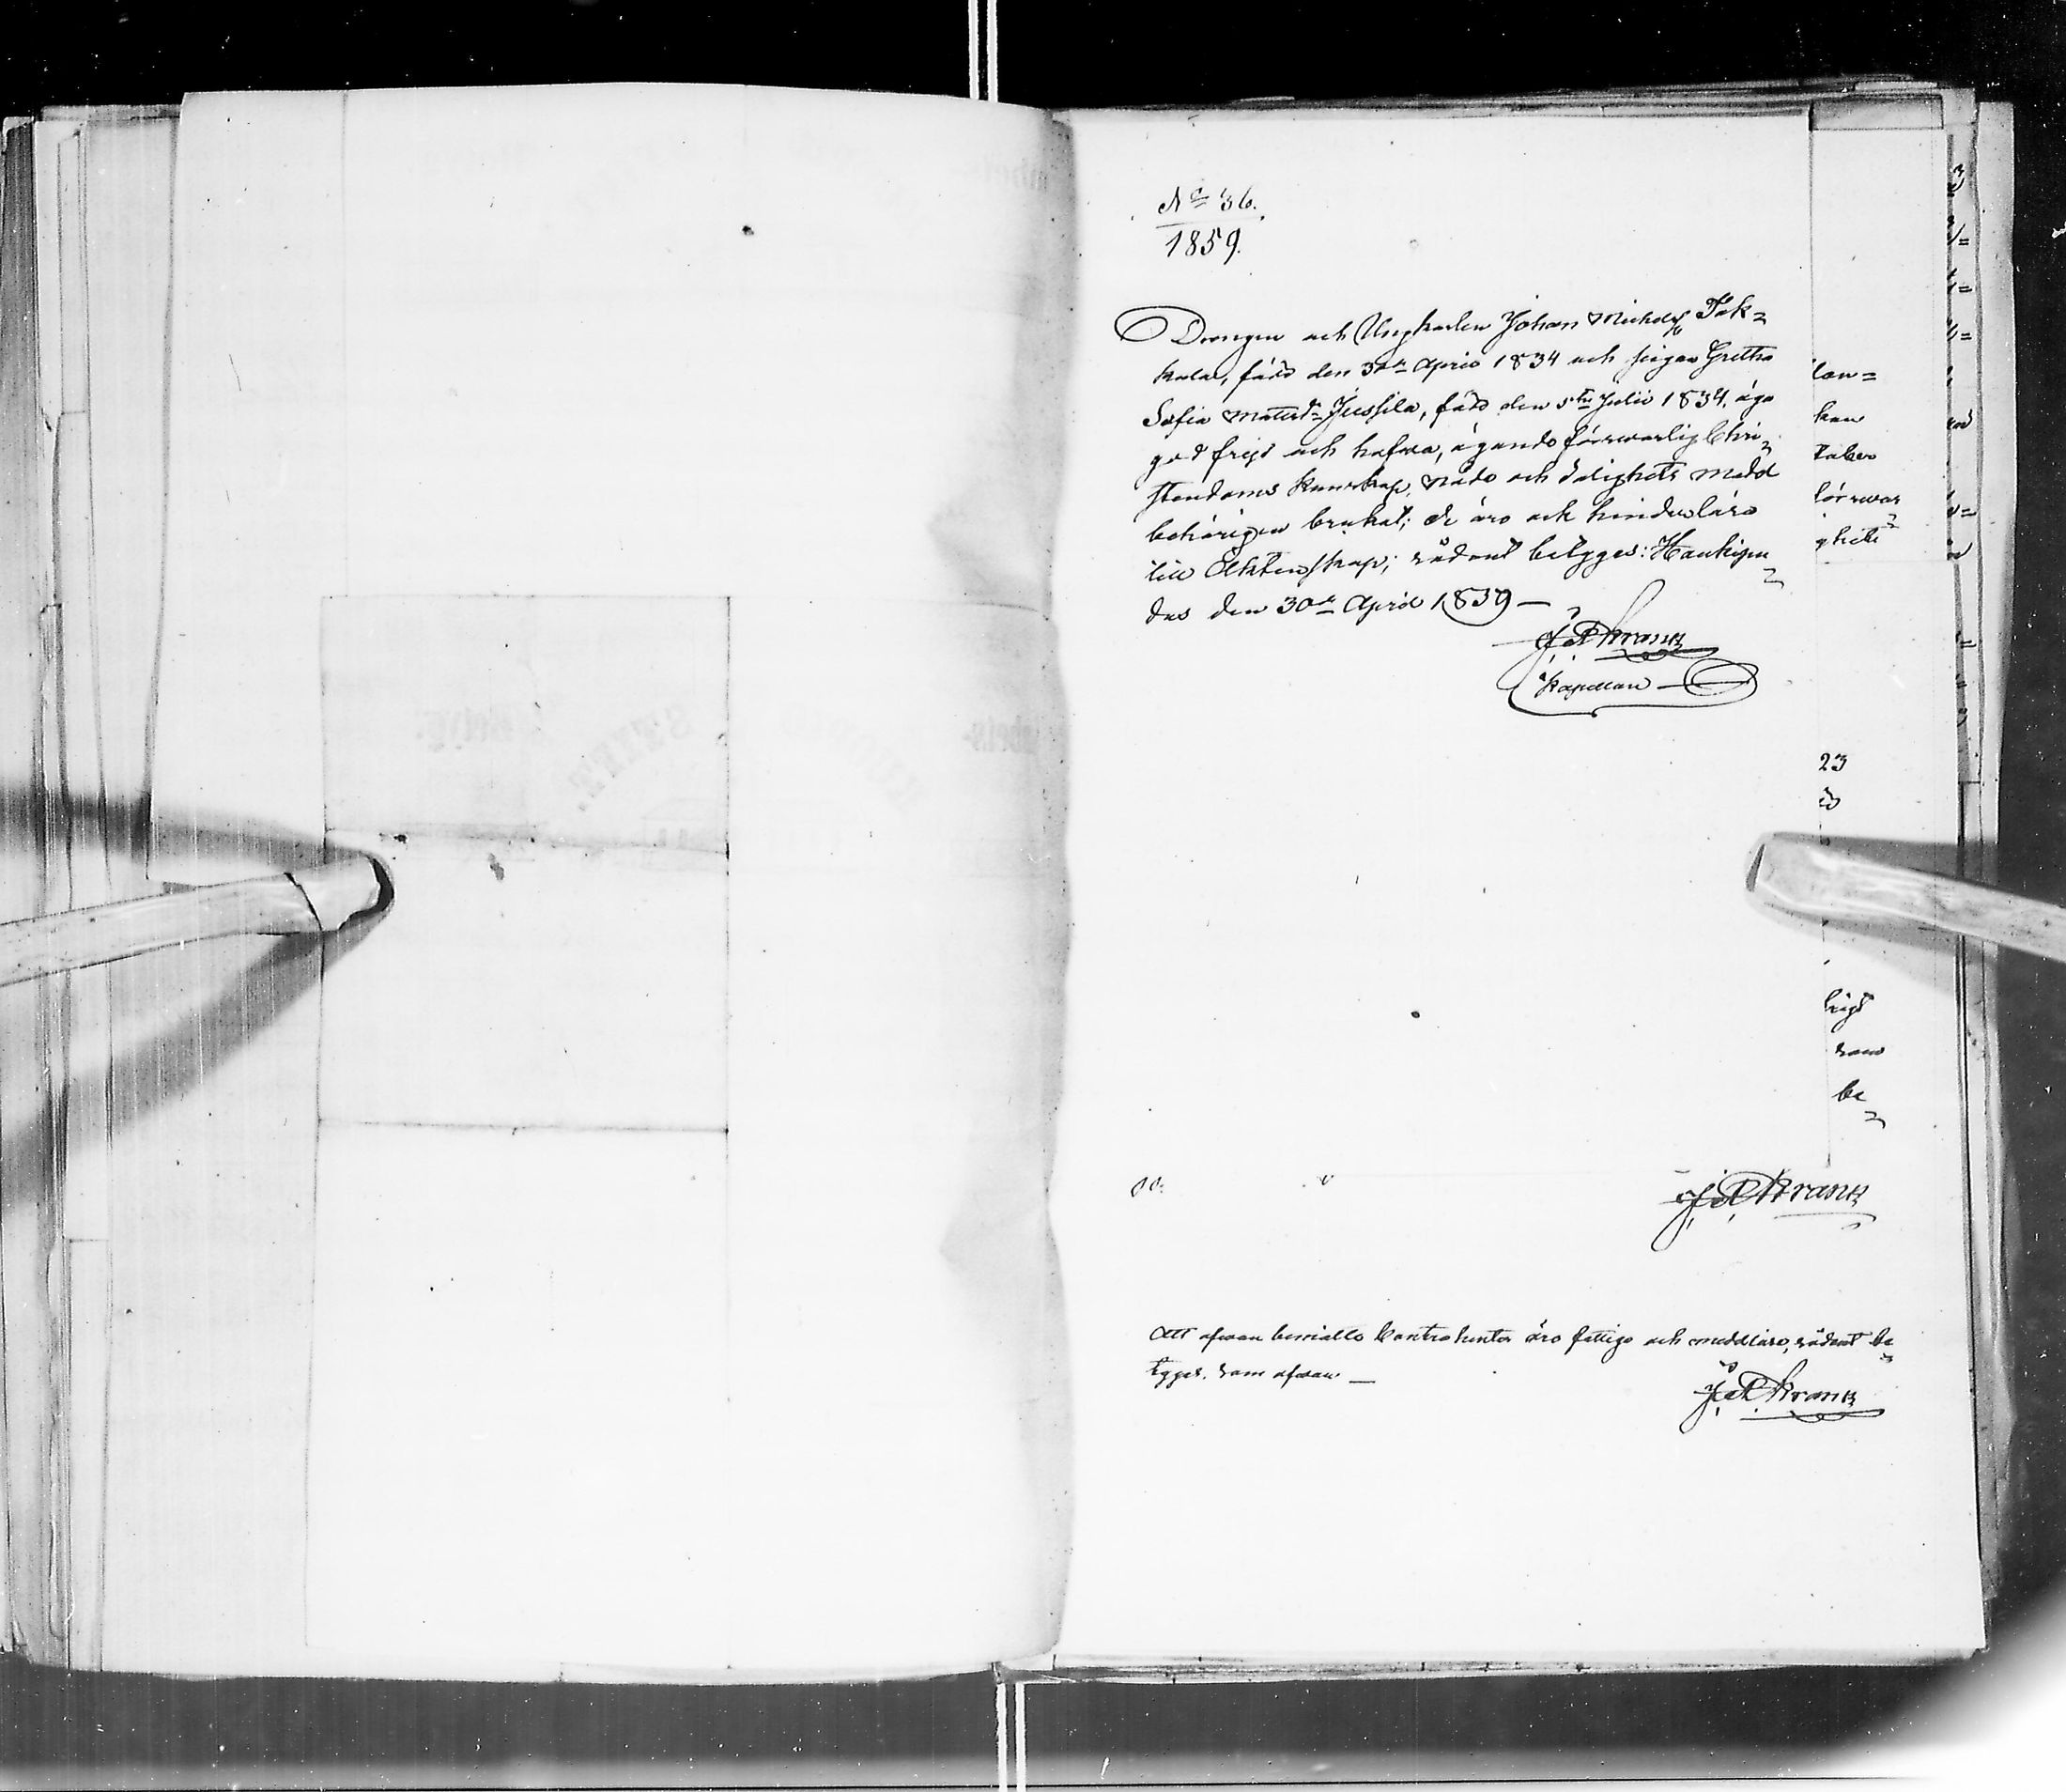 No 36.
1859.
Drengen och Ungkarlen Johan Michelss Tak=
kala, född den 30de April 1834 och pigan Gretha
Sofia Mattsdr Jussila, född den 5te Julii 1834, äga
god frejd och hafwa, ägande förswarlig Chri
stendoms kunskap, nåde och salighets medel
behörigen brukat; de äro ock hinderlöse
till Äktenskap; sådant betygges: Haukipu
das den 30de April 1859 —
J R Krank
Kapellan
lan=
kan
taber
förswar
ghets
23
ligt
som
be
J R Krank
Att ofwan bemälte Contrahenter äro fattige och medellöse, sådant be
tygges. som ofwan —
J R Krank